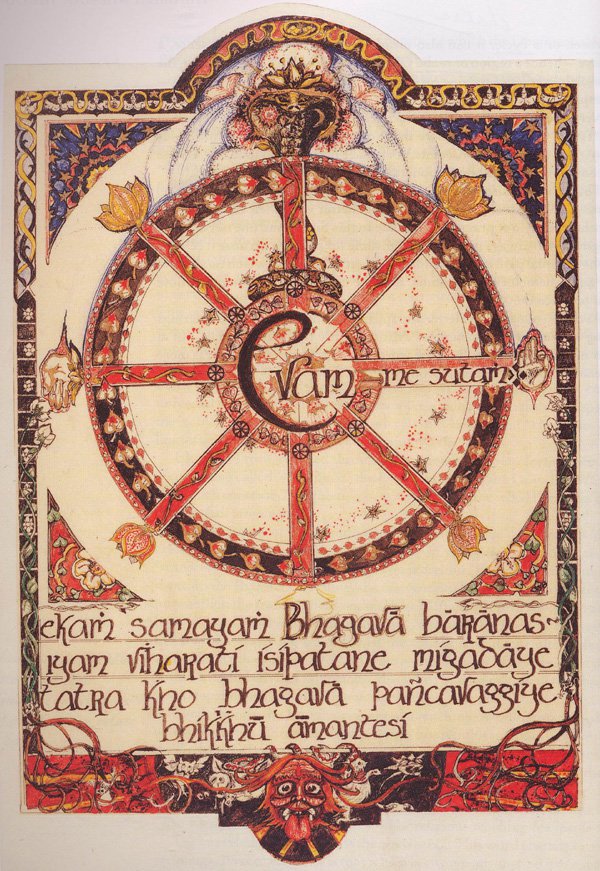 Evam me sutaṁ
ekaṁ samayaṁ Bhagavā bārānas~
iyam viharati isipatane migadāye
tatra kho bhagavā pañcavaggiye
bhikkhū āmantesi